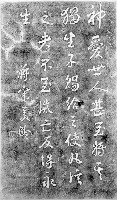 神愛世人甚至將其
獨生子賜給之使凡信
之者不至滅亡反得永
生